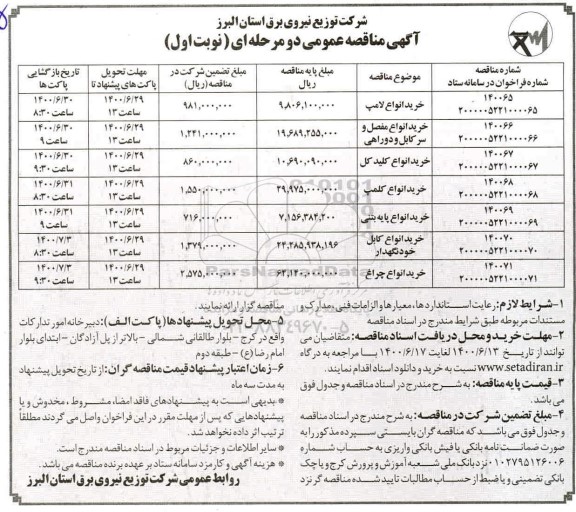 شرکت توزیع نیروی برق استان البرز
آگهی مناقصه عمومی دو مرحله ای (نوبت اول)
شماره مناقصه شماره فراخوان در سامانه ستاد | موضوع مناقصه | مبلغ پایه مناقصه ریال | مبلغ تضمین شرکت در مناقصه (ریال) | مهلت تحویل پاکت های پیشنهاد تا | تاریخ بازگشایی پاکت ها
۱۴۰۰۶۵ ۲۰۰۰۰۰۵۲۲۱۰۰۰۰۶۵ | خرید انواع لامپ | ۹,۸۰۶,۱۰۰,۰۰۰ | ۹۸۱,۰۰۰,۰۰۰ | ۱۴۰۰/۶/۲۹ ساعت ۱۳ | ۱۴۰۰/۶/۳۰ ساعت ۸:۳۰
۱۴۰۰۶۶ ۲۰۰۰۰۰۵۲۲۱۰۰۰۰۶۶ | خرید انواع مفصل و سرکابل و دوراهی | ۱۹,۶۸۹,۲۵۵,۰۰۰ | ۱,۲۴۱,۰۰۰,۰۰۰ | ۱۴۰۰/۶/۲۹ ساعت ۱۳ | ۱۴۰۰/۶/۳۰ ساعت ۹
۱۴۰۰۶۷ ۲۰۰۰۰۰۵۲۲۱۰۰۰۰۶۷ | خرید انواع کلید کل | ۱۰,۶۹۰,۰۹۰,۰۰۰ | ۸۶۰,۰۰۰,۰۰۰ | ۱۴۰۰/۶/۲۹ ساعت ۱۳ | ۱۴۰۰/۶/۳۰ ساعت ۹:۳۰
۱۴۰۰۶۸ ۲۰۰۰۰۰۵۲۲۱۰۰۰۰۶۸ | خرید انواع کلمپ | ۲۹,۹۷۵,۰۰۰,۰۰۰ | ۱,۵۵۰,۰۰۰,۰۰۰ | ۱۴۰۰/۶/۲۹ ساعت ۱۳ | ۱۴۰۰/۶/۳۱ ساعت ۸:۳۰
۱۴۰۰۶۹ ۲۰۰۰۰۰۵۲۲۱۰۰۰۰۶۹ | خرید انواع پایه بتنی | ۷,۱۵۶,۳۸۴,۲۰۰ | ۷۱۶,۰۰۰,۰۰۰ | ۱۴۰۰/۶/۲۹ ساعت ۱۳ | ۱۴۰۰/۶/۳۱ ساعت ۹
۱۴۰۰۷۰ ۲۰۰۰۰۰۵۲۲۱۰۰۰۰۷۰ | خرید انواع کابل خودنگهدار | ۲۴,۲۸۵,۹۳۸,۱۹۶ | ۱,۳۷۹,۰۰۰,۰۰۰ | ۱۴۰۰/۶/۲۹ ساعت ۱۳ | ۱۴۰۰/۷/۳ ساعت ۸:۳۰
۱۴۰۰۷۱ ۲۰۰۰۰۰۵۲۲۱۰۰۰۰۷۱ | خرید انواع چراغ | ۲,۵۷۵,۰۰۰,۰۰۰ | ۱۴۰۰/۶/۲۹ ساعت ۱۳ | ۱۴۰۰/۷/۳ ساعت ۹:۳۰
۱-شرایط لازم: رعایت استانداردها، معیارها و الزامات فنی، مدارک و
مستندات مربوطه طبق شرایط مندرج در اسناد مناقصه
۲-مهلت خرید و محل دریافت اسناد مناقصه: متقاضیان می
توانند از تاریخ ۱۴۰۰/۶/۱۳ لغایت ۱۴۰۰/۶/۱۷ با مراجعه به درگاه
www.setadiran.ir نسبت به خرید و دانلود اسناد اقدام نمایند.
۳-قیمت پایه مناقصه: به شرح مندرج در اسناد مناقصه و جدول فوق
می باشد.
۴-مبلغ تضمین شرکت در مناقصه: به شرح مندرج در اسناد مناقصه
و جدول فوق می باشد که مناقصه گران بایستی سپرده مذکور را به
صورت ضمانت نامه بانکی یا فیش بانکی واریزی به حساب شماره
۰۱۰۲۷۹۵۱۲۶۰۰۶ نزد بانک ملی شعبه آموزش و پرورش کرج و یا چک
بانکی تضمینی و یا ضبط از حساب مطالبات تایید شده مناقصه گر نزد
مناقصه گزار ارائه نمایند.
۵-محل تحویل پیشنهادها (پاکت الف): دبیرخانه امور تدارکات
واقع در کرج – بلوار طالقانی شمالی – بالاتر از پل آزادگان – ابتدای بلوار
امام رضا (ع) – طبقه دوم
۶-زمان اعتبار پیشنهاد قیمت مناقصه گران: از تاریخ تحویل پیشنهاد
به مدت سه ماه
* بدیهی است به پیشنهادهای فاقد امضاء مشروط، مخدوش و یا
پیشنهادهایی که پس از مهلت مقرر در این فراخوان واصل می گردند مطلقاً
ترتیب اثر داده نخواهد شد.
* سایر اطلاعات و جزئیات مربوط در اسناد مناقصه مندرج است.
* هزینه آگهی و کارمزد سامانه ستاد بر عهده برنده مناقصه می باشد.
روابط عمومی شرکت توزیع نیروی برق استان البرز
ParsNamadData